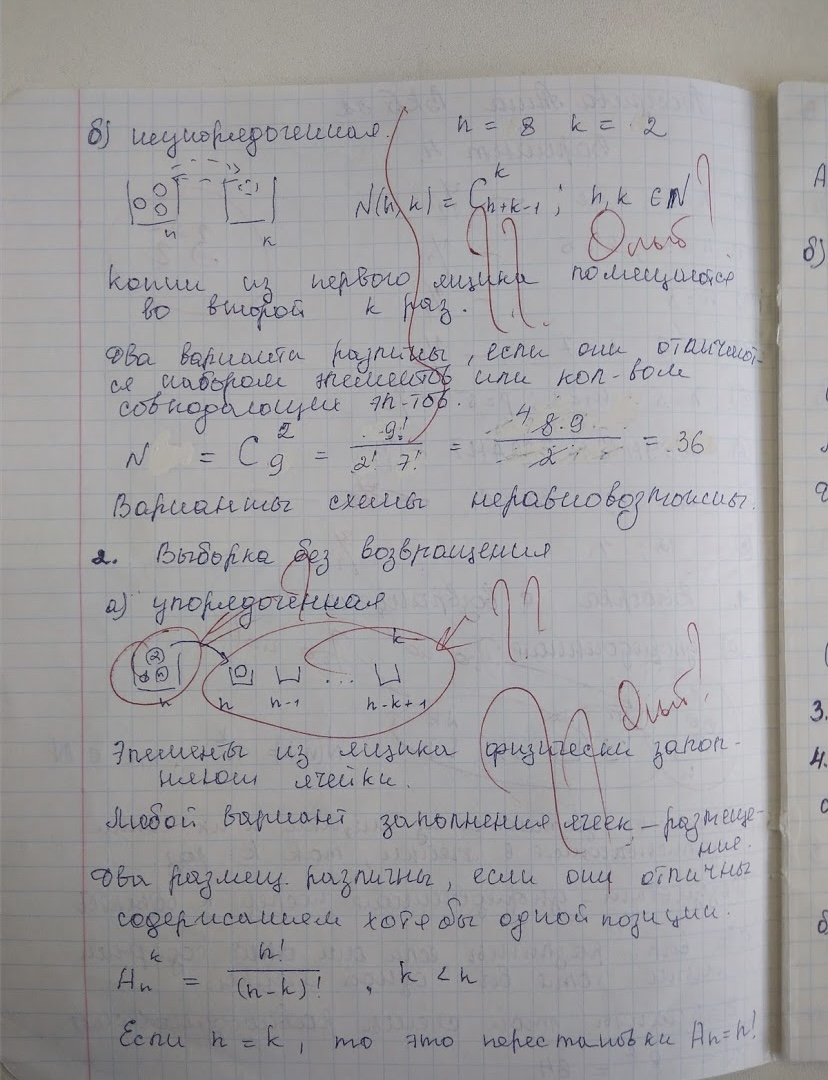 б) неупорядоченная. n = 8 k = 2
n k
N(n,k) = C_{n+k-1}^{k} ; n,k ∈ N ?
??
Опыт
Копии из первого ящика помещаются
во второй k раз.
Два варианта различны, если они отличают-
ся набором элементов или кол-вом
совпадающих эл-тов.
N = C_9^2 = 9!/(2! 7!) = 8·9/2 = 36
4
Варианты схемы неравновозможны.
2. Выборка без возвращения
а) упорядоченная
?
??
k
n n n-1 ... n-k+1
Опыт?
Элементы из ящика физически запол-
няют ячейки.
Любой вариант заполнения ячеек – размеще-
ние.
Два размещ. различны, если они отличны
содержанием хотя бы одной позиции.
A_n^k = n!/(n-k)! , k < n
Если n = k, то это перестановки A_n = n!
А
б)
3.
4.